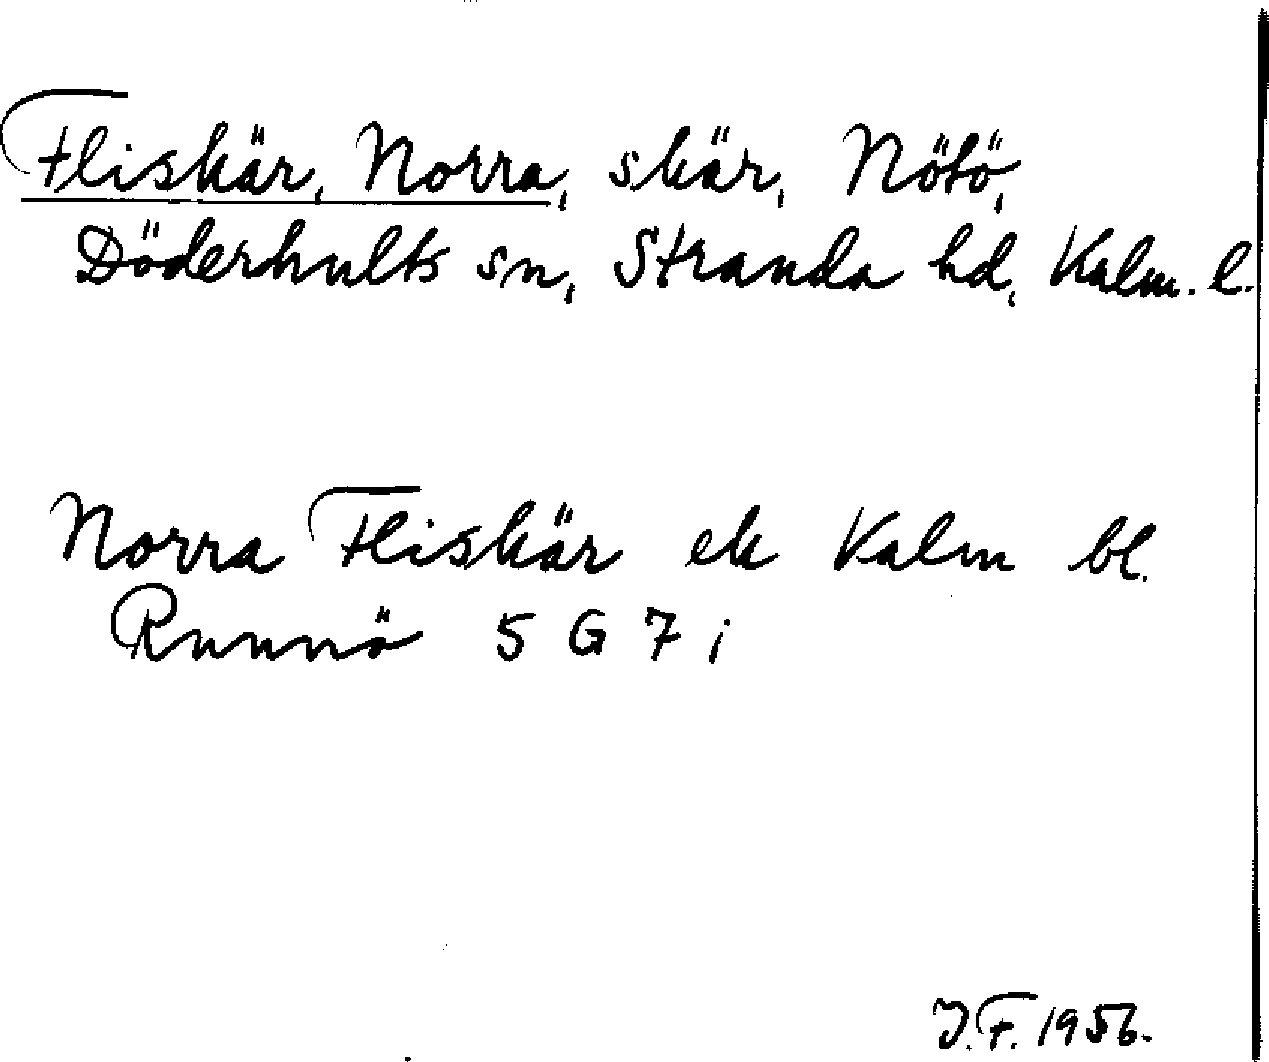 Fliskär, Norra, skär, Nötö,
Döderhults sn, Stranda hd, Kalm. l.
Norra Fliskär ek Kalm bl.
Runnö 5 G 7 i
J.F. 1956.